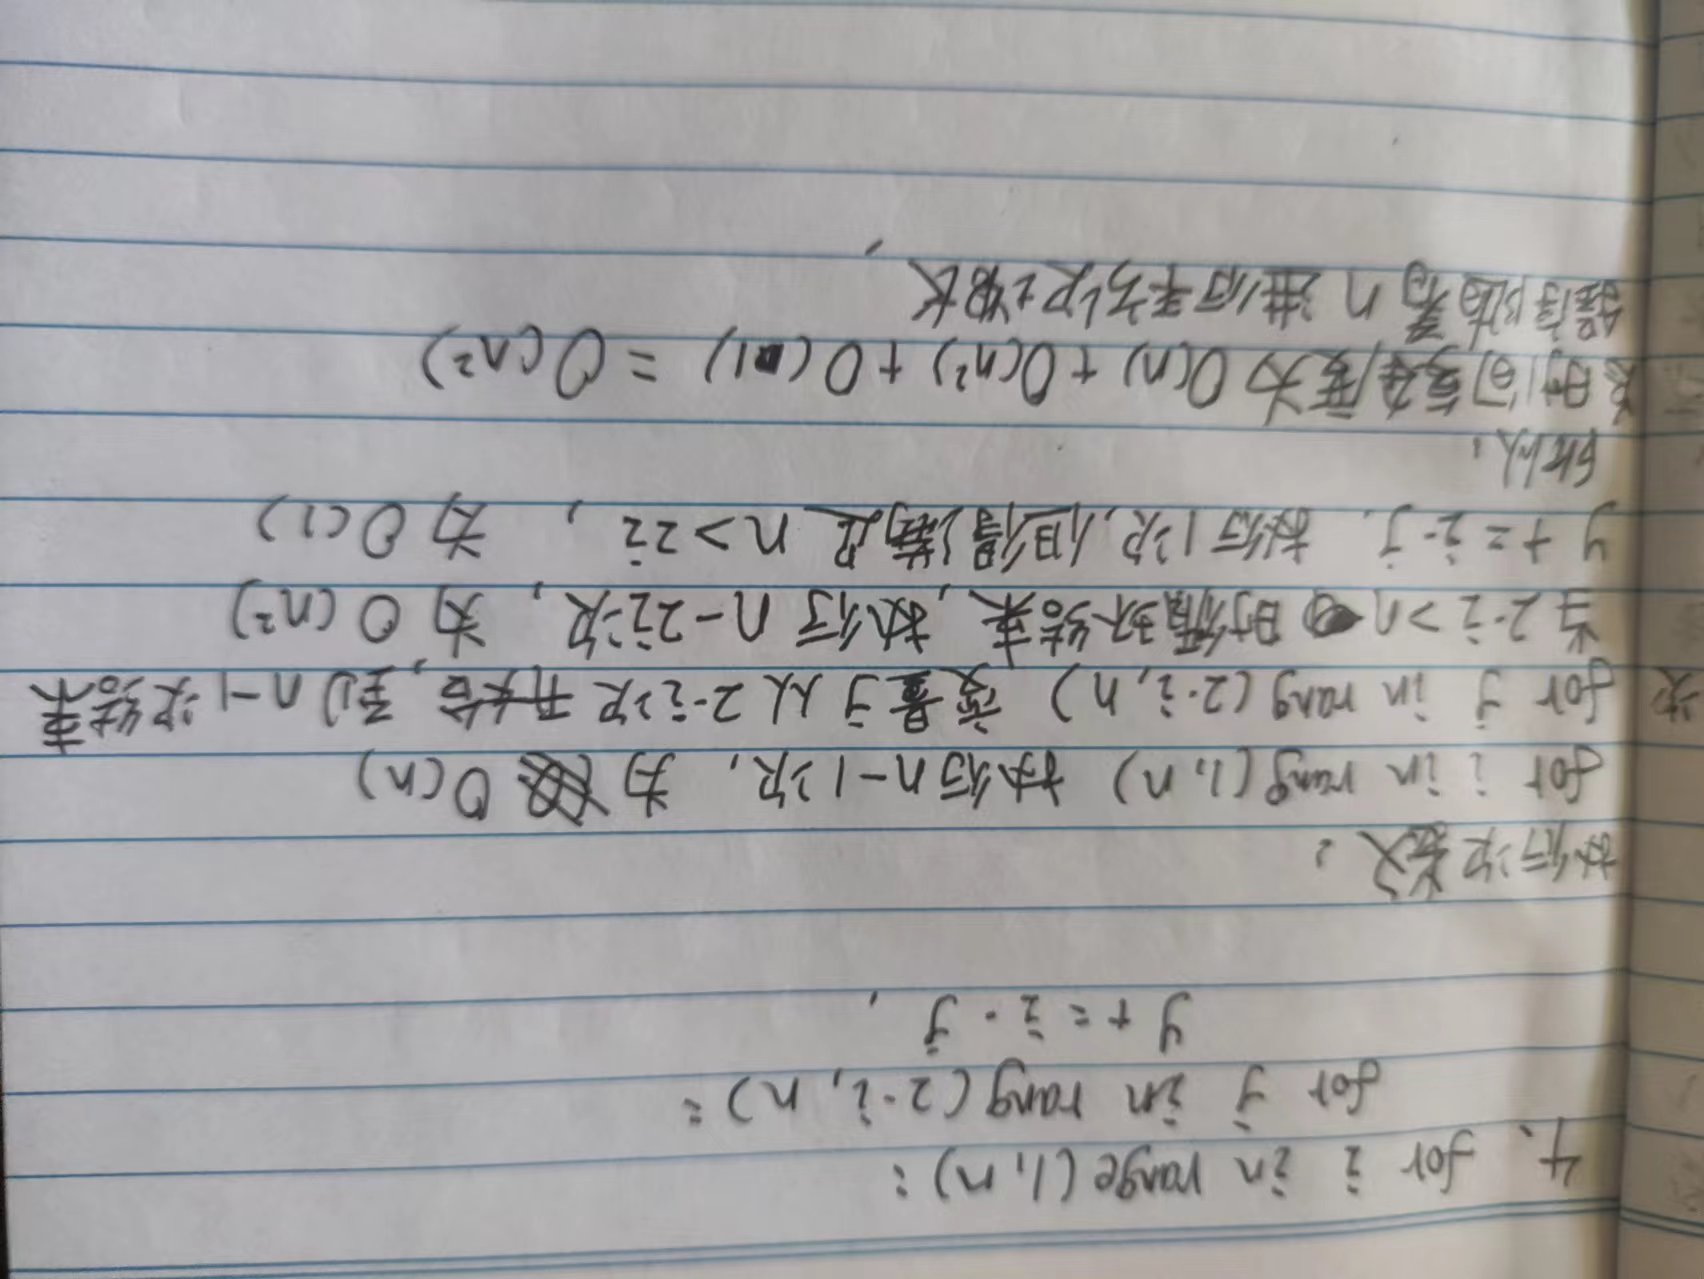 4、for i in range(1,n):
for j in rang(2·i,n):
y+=i·j,
执行次数:
for i in rang(1,n) 执行n-1次, 为 O(n)
for j in rang(2·i,n) 变量j从2·i次开始,到n-1次结束
当2·i>n 时循环结束,执行n-2i次,为O(n²)
y+=i·j, 执行1次,但得满足n>2i,为O(1)
所以:
总时间复杂度为O(n)+O(n²)+O(1)=O(n²)
程序随着n进行平方次增长,